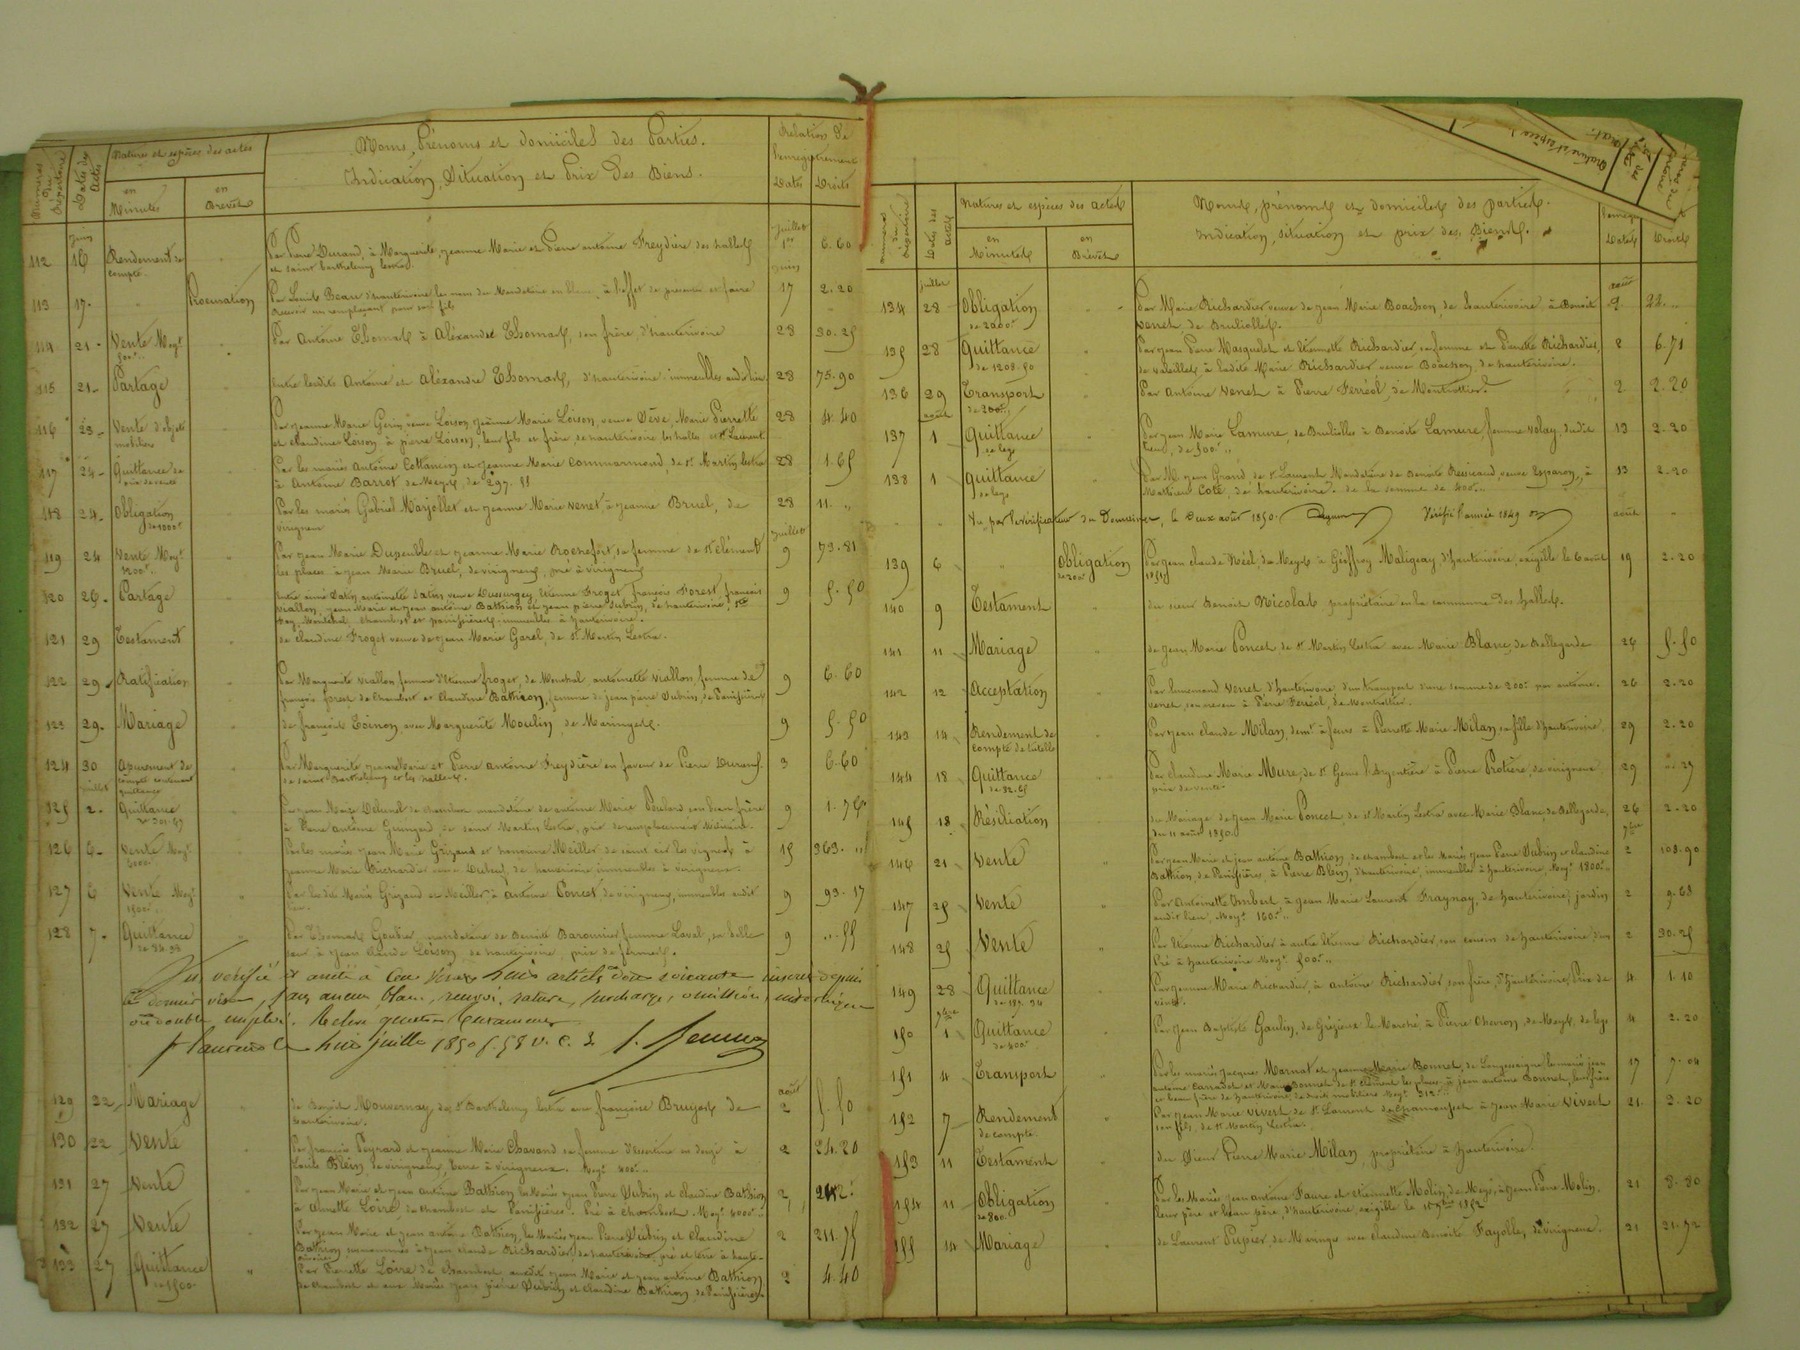 Numéros du Répertoire
Dates des actes
Natures et espèces des actes
en Minutes
en Brevet
Noms, Prénoms et domiciles des Parties.
Indication, Situation et Prix des Biens.
Relation de l'enregistrement
Dates
Droits
juin
juillet
112 16 Rendement de compte. Par Pierre Durand, à Marguerite, jeanne Marie et Pierre antoine Freydière des halles 1er 6.60
et saint barthelemy lestra.
juin
113 17. Procuration Par Louis Beau d'hauterivoire le nom du Mandataire en blanc, à l'effet de présenter et faire 17 2.20
recevoir un remplaçant pour son fils
114 21. Vente Moyt 500f.. Par Antoine Thomas à Alexandre Thomas, son frère, d'hauterivoire 28 30.25
115 21. Partage Entre lesdits Antoine et Alexandre Thomas, d'hauterivoire immeubles audit lieu 28 75.90
116 23. Vente d'objets mobiliers Par jeanne Marie Gerin veuve Loison, jeanne Marie Loison, veuve Dève, Marie Pierrette 28 4.40
et claudine Loison à pierre Loison, leur fils et frère, de hauterivoire, les halles et St Laurent
117 24. Quittance de prix de vente Par les mariés Antoine Cottancin et jeanne Marie Commarmond, de St Martin lestra 28 1.65
à Antoine Barrot de Meys, de 297.55
118 24. Obligation de 1000f Par les mariés Gabriel Marjollet et jeanne Marie Venet à jeanne Bruel, de 28 11. "
virigneux
juillet
119 24 Vente Moyt 1200f.. Par jean Marie Dupeuble et jeanne Marie Rochefort, sa femme de St clément 9 79.81
les places à jean Marie Bruel, de virigneux, pré à virigneux
120 26. Partage 9 5.50
viallon, jean Marie et jean antoine Bathion et jean pierre Dubrin, de hauterivoire
121 29 Testament de claudine Froget veuve de jean Marie Garel, de St Martin Lestra.
122 29. Ratification Par Marguerite viallon femme d'Etienne froget, de Montchal antoinette viallon femme de 9 6.60
françois forest de chambost et Claudine Bathion, femme de jean pierre Dubrin, de Panissières
123 29. Mariage de françois Toinon, avec Marguerite Moulin, de Maringes. 9 5.50
124 30 Apurement de compte contenant quittance Par Marguerite, jeanne Marie et Pierre antoine Freydière en faveur de Pierre Durand 3 6.60
de saint Barthelemy et les halles.
juillet
125 2. Quittance 9 1.76
à Pierre Antoine Guingard, de saint Martin Lestra, prix de remplacement militaire.
126 6. Vente Moyt 6000f.. Par les mariés jean Marie Grizard et Meiller de saint cir les vignes à 15 363. "
jeanne Marie Richardier veuve Dubeuf, de hauterivoire immeubles à virigneux.
127 6 Vente Moyt 1500f.. Par lesdits Mariés Grizard et Meiller à Antoine Poncet de virigneux, immeubles audit 9 93.17
lieu.
128 7. Quittance de 94.98 Par Thomas Goutier, mandataire de Benoite Baronnier femme Laval, sa belle 9 ".55
soeur à jean Claude Loison, de hauterivoire, prix de fermes.
Vu, vérifié et arrêté à cent vingt huit articles dont soixante inscrits depuis
le dernier visa, sans aucun blanc, renvoi, rature, surcharge, omission, intercalation
ou double emploi.
St Laurent le huit juillet 1850
août
129 22. Mariage de Benoit Mouvernay, de St Barthelemy lestra avec françoise Bruyas de 2 5.50
hauterivoire.
130 22 Vente Par françois Peyrard et jeanne Marie Chavand sa femme à 2 24.20
Louis Blein de virigneux, terre à virigneux. Moyt 400f..
131 27 Vente Par jean Marie et jean antoine Bathion les Mariés jean Pierre Dubrin et Claudine Bathion 2 242.
à Annette Loire, de chambost et Panissières. Pré à chambost. Moyt 4000f..
132 27 Vente Par jean Marie et jean antoine Bathion, les Mariés jean Pierre Dubrin et Claudine 2 211.75
Bathion, surnommés à jean claude Richardier, de hauterivoire, pré et terre à haute-
rivoire
133 27 Quittance de 1500 Par Pierrette Loire de chambost auxdits jean Marie et jean antoine Bathion 2 4.40
de chambost et aux Mariés jean pierre Dubrin et Claudine Bathion de Panissières.
Numéros du Répertoire
Dates des actes
Natures et espèces des actes
en Minutes
en Brevet
Noms, prénoms et domiciles des parties.
Indication, situation et prix des Biens.
Dates
Droits
juillet
août
134 28 Obligation de 2000f Par Marie Richardier veuve de jean Marie Boasson de hauterivoire à Benoit 9 22. "
Venet, de Bruliolles.
135 28 Quittance de 1208.50 Par jean Pierre Masquelet et Etiennette Richardier, sa femme et Pierre Richardier, 8 6.71
de valeilles à ladite Marie Richardier veuve Boasson, de hauterivoire.
136 29 Transport de 200f.. Par Antoine Venet à Pierre Ferréol, de Montrottier. 2 2.20
août
137 1 Quittance de legs Par jean Marie Lamure, de Brulioles à Benoite Lamure, femme volay, dudit 13 2.20
lieu, de 500f..
138 1 Quittance de legs Par M. jean Grand, de St Laurent Mandataire de Benoite veuve Esparon, à 13 2.20
Mathieu Cote, de hauterivoire, de la somme de 400f..
Vu par le vérificateur du Domaine, le Deux août 1850. Vérifié l'année 1849
août
139 6 Obligation de 200f Par jean claude Néel, de Meys à Géoffroy Maligeay, d'hauterivoire, exigible le 6 août 19 2.20
140 9 Testament du sieur Benoit Nicolas propriétaire en la commune des halles.
141 11 Mariage de jean Marie Poncet de St Martin Lestra avec Marie Blanc, de Bellegarde 26 5.50
142 12 Acceptation Par Venet d'hauterivoire, d'un transport d'une somme de 200f par antoine 26 2.20
Venet, son neveu à Pierre Ferréol, de Montrottier.
143 14 Rendement de compte de tutelle Par jean claude Milan, demt à feurs à Pierrette Marie Milan, sa fille d'hauterivoire 29 2.20
144 18 Quittance de 52.65 Par claudine Marie Mure, de St Genis l'Argentière à Pierre Protière, de virigneux 29 ".27
prix de vente.
145 18 Résiliation du Mariage de jean Marie Poncet, de St Martin Lestra avec Marie Blanc, de Bellegarde, 26 2.20
du 11 août 1850.
7bre
146 21 Vente Par jean Marie et jean antoine Bathion, de chambost et les Mariés jean Pierre Dubrin et claudine 2 108.90
Bathion, de Panissières, à Pierre Blein, d'hauterivoire, immeubles à hauterivoire, Moyt 1800f..
147 25 Vente Par Antoinette Imbert à jean Marie Laurent Fraynay, de hauterivoire; jardin 2 9.68
audit lieu, Moyt 160f..
148 25 Vente Par Etienne Richardier à autre Etienne Richardier, son cousin de hauterivoire d'un 2 30.25
Pré à hauterivoire Moyt 500f..
149 28 Quittance Par jeanne Marie Richardier, à antoine Richardier, son frère, d'hauterivoire, Prix de 4 1.10
vente.
7bre
150 1 Quittance de 400f Par jean Baptiste Goulin, de Grézieux le Marché, à Pierre Chevron, de Meys, de legs 4 2.20
151 4 Transport Par les mariés jacques Marnat et jeanne Marie Bonnet, de Longessaigne les mariés jean 17 7.04
antoine Carradot et Marie Bonnet de St clément les places à jean antoine Bonnet, leur frère
et beau frère de hauterivoire, de droits mobiliers Moyt 312f..
152 7 Rendement de compte Par jean Marie Vivert, de St Laurent de chamousset à jean Marie Vivert 21. 2.20
son fils, de St Martin Lestra.
153 11 Testament du Sieur Pierre Marie Milan, propriétaire à hauterivoire.
154 11 Obligation de 800 Par les Mariés jean antoine Faure et etiennette Molin, de Meys, à jean Pierre Molin, 21 8.80
leur père et beau père, d'hauterivoire, exigible le 1852
155 14 Mariage de Laurent Pupier, de Maringes avec claudine Benoite Fayolle, de virigneux. 21 21.72